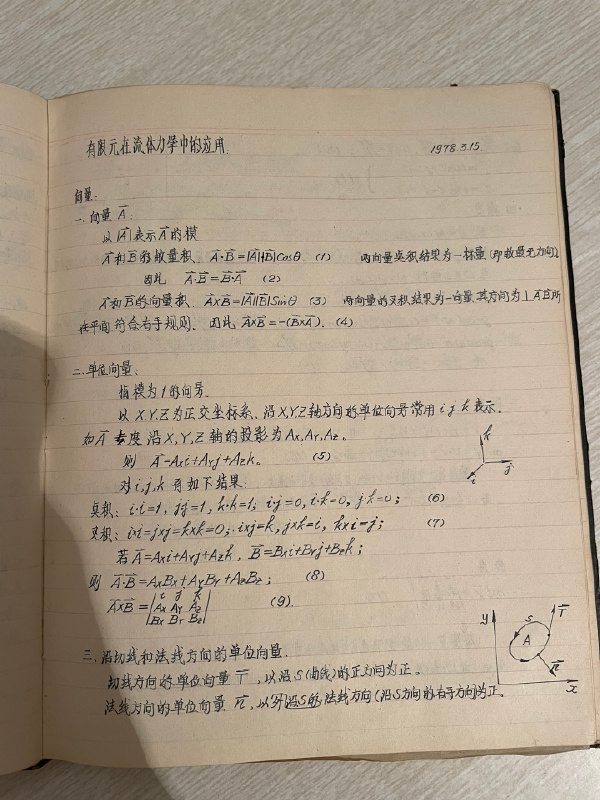 有限元在流体力学中的应用. 1978.3.15
向量:
一. 向量 A̅:
以|A̅|表示A̅的模
A̅和B̅的数量积. A̅·B̅=|A̅||B̅|Cosθ. (1) 两向量点积结果为一标量(即数量无方向).
因此 A̅·B̅=B̅·A̅ (2)
A̅和B̅的向量积. A̅×B̅=|A̅||B̅|Sinθ (3) 两向量的叉积结果为一向量,其方向为⊥A̅,B̅所
在平面,符合右手规则. 因此 A̅×B̅=-(B̅×A̅). (4)
二. 单位向量:
指模为1的向量.
以X,Y,Z为正交坐标系、沿X,Y,Z轴方向的单位向量常用 i j k 表示.
如A̅ 沿X,Y,Z轴的投影为Ax,Ay,Az。
则 A̅=Axi+Ayj+Azk。 (5)
对i,j,k有如下结果:
点积: i·i=1, j·j=1, k·k=1; i·j=0, i·k=0, j·k=0; (6)
叉积: i×i=j×j=k×k=0; i×j=k, j×k=i, k×i=j; (7)
若A̅=Axi+Ayj+Azk, B̅=Bxi+Byj+Bzk;
则 A̅·B̅=AxBx+AyBy+AzBz; (8)
A̅×B̅=|i j k
Ax Ay Az
Bx By Bz| (9).
k
i j
三. 沿切线和法线方向的单位向量.
切线方向的单位向量 T̅, 以沿S(曲线)的正方向为正。
法线方向的单位向量 n̅, 以沿S的法线方向(沿S方向的右手方向为正.
y S T̅
A
n̅
x